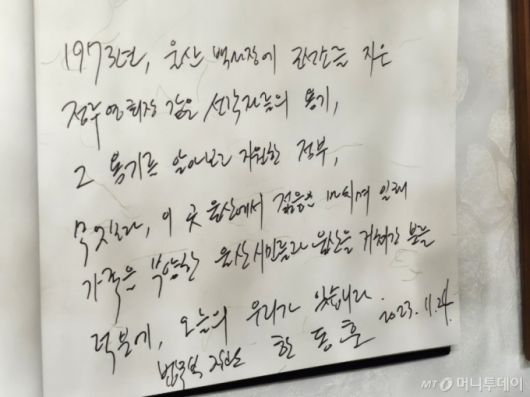 1973년, 울산 백사장에 조선소를 지은
정주영 회장 같은 선각자들의 용기,
그 용기를 알아보고 지원한 정부,
무엇보다, 이 곳 울산에서 젊음을 바쳐 일해
가족을 부양한 울산시민들과 울산을 거쳐간 분들
덕분에, 오늘의 우리가 있습니다.
법무부 장관 한동훈 2023. 11. 24.
MT 머니투데이